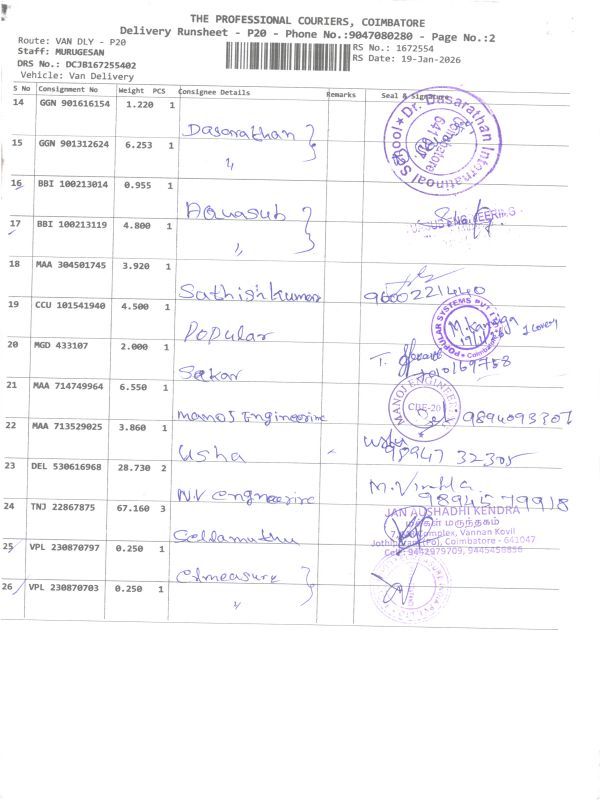 THE PROFESSIONAL COURIERS, COIMBATORE
Delivery Runsheet - P20 - Phone No.:9047080280 - Page No.:2
Route: VAN DLY - P20
Staff: MURUGESAN
DRS No.: DCJB167255402
Vehicle: Van Delivery
RS No.: 1672554
RS Date: 19-Jan-2026
S No Consignment No Weight PCS Consignee Details Remarks Seal & Signature
14 GGN 901616154 1.220 1 Dasarathan
Dr. Dasarathan International School
Coimbatore
641
15 GGN 901312624 6.253 1 "
16 BBI 100213014 0.955 1 Aquasub
17 BBI 100213119 4.800 1 "
18 MAA 304501745 3.920 1 Sathishkumar
19 CCU 101541940 4.500 1 Popular
POPULAR SYSTEMS PVT
Coimbatore
1 Cover
20 MGD 433107 2.000 1 Sekar T.
21 MAA 714749964 6.550 1 Manoj Engineering 9894093307
MANOJ ENGINEER
CBE-20
22 MAA 713529025 3.860 1 Usha usha
23 DEL 530616968 28.730 2 N.V engineering M. Vimala
9894579918
24 TNJ 22867875 67.160 3 Cellamuthu
JAN AUSHADHI KENDRA
மக்கள் மருந்தகம்
Complex, Vannan Kovil
(Po), Coimbatore - 641047
Cell: 9442979709, 9445458856
25 VPL 230870797 0.250 1 Elmeasure
26 VPL 230870703 0.250 1 "